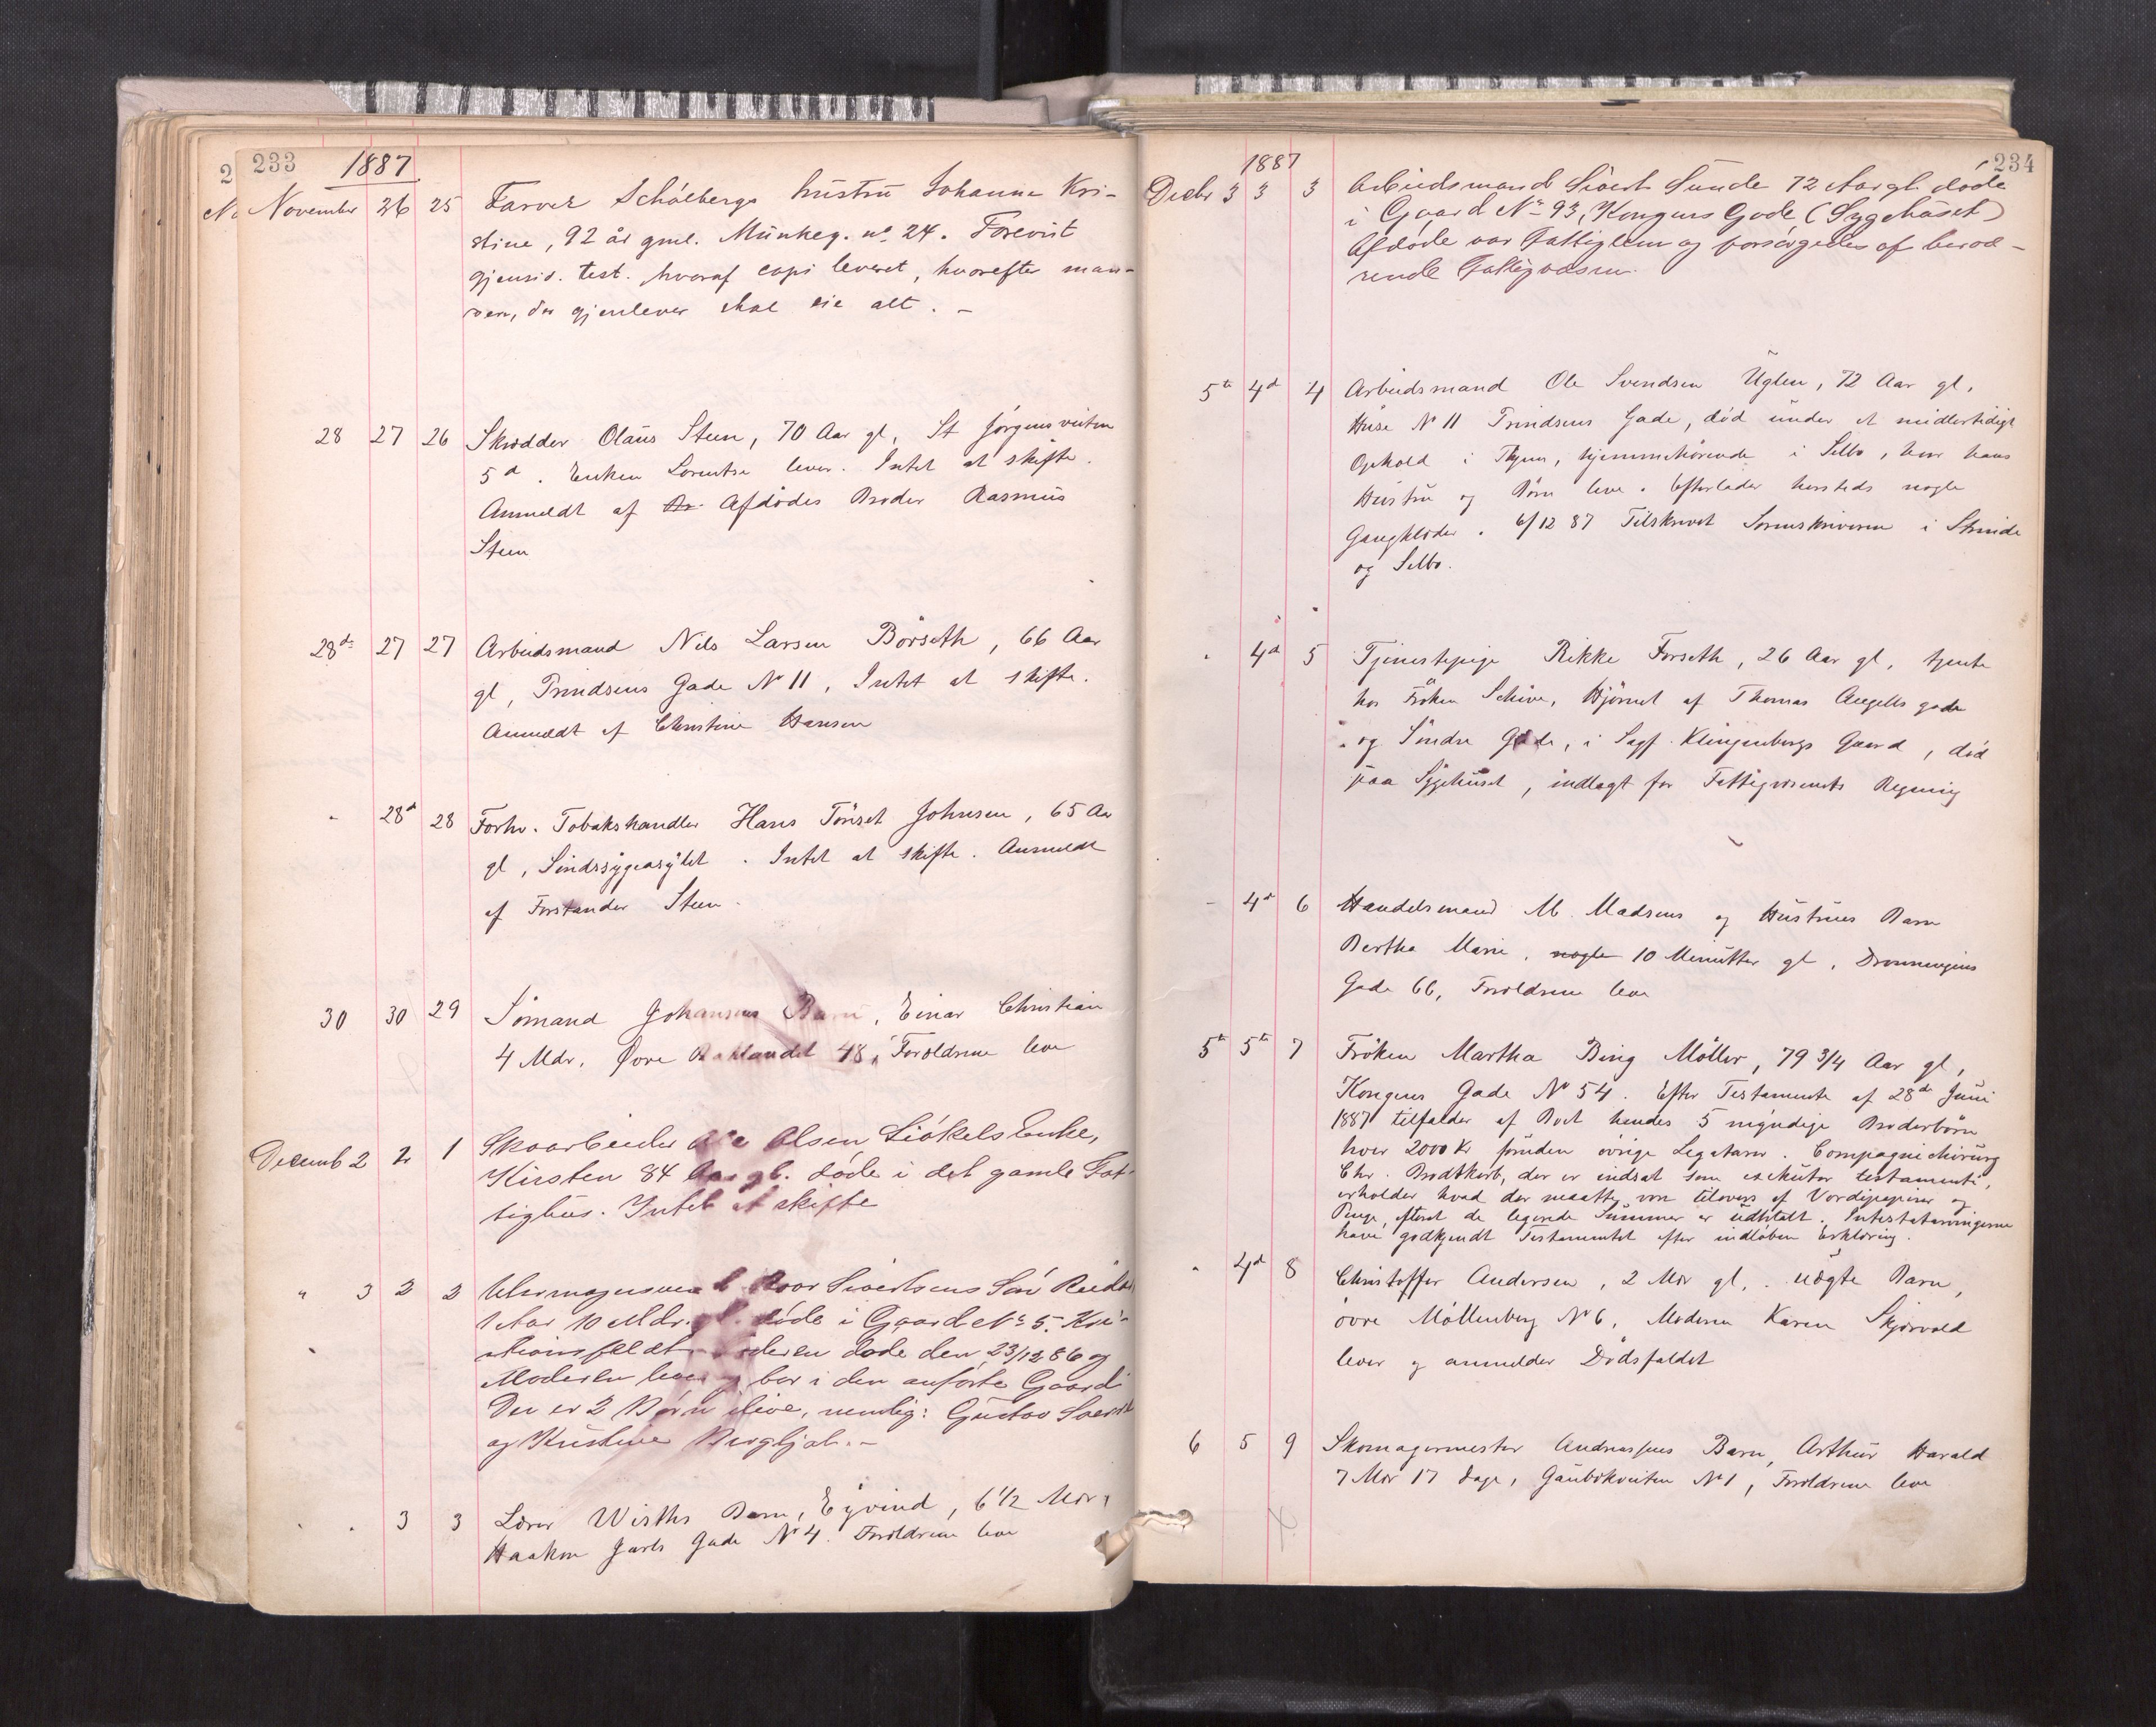 233
1887
November 26 25 Farver Schölbergs hustru Johanne Kri-
stine, 92 år gml. Munkeg. no 24. Forevist
gjensid. test. hvoraf copi leveret, hvorefter man-
den, der gjenlever skal eie alt. -
28 27 26 Skrædder Olaus Steen, 70 Aar gl, St Jørgensveiten
5 d. Enken Lorentse lever. Intet at skifte.
Anmeldt af Afdødes Broder Rasmus
Steen
28de 27 27 Arbeidsmand Nils Larsen Börseth, 66 Aar
gl, Prindsens Gade No 11, Intet at skifte.
Anmeldt af Christine Hansen
" 28d 28 Forhv. Tobakshandler Hans Tönset Johnsen, 65 Aar
gl, Sindssygeasylet. Intet at skifte. Anmeldt
af Forstander Steen.
30 30 29 Sömand Johansens Barn, Einar Christian
4 Mdr. Øvre Baklandet 48, Forældrene leve
Decemb 2 2 1 Skoarbeider Ole Olsen Enke,
Kirsten 84 Aar gl. døde i det gamle Fat-
tighus. Intet at skifte
" 3 2 2 Uhrmagersvend Sivertsens Sön Reidar
1 Aar 10 Mdr. gl. døde i Gaard No 5. Kri-
stiansfeldt Faderen døde den 23/12 86 og
Moderen lever og bor i den anførte Gaard
Der er 2 Børn ilive, nemlig: Gustav
og Kristine Bergljot. -
" " 3 3 Lærer Wisths Barn, Eyvind, 6 1/2 Mdr,
Haakon Jarls Gade No 4. Forældrene leve
234
1887
Decbr 3 3 3 Arbeidsmand Sivert Sunde 72 Aar gl. døde
i Gaard No 93, Kongens Gade (Sygehuset)
Afdøde var Fattiglem og forsørgedes af hervæ-
rende Fattigvæsen.
5te 4d 4 Arbeidsmand Ole Svendsen Uglen, 72 Aar gl,
Huse No 11 Prindsens Gade, död under et midlertidigt
Ophold i Byen, hjemmehörende i Selbo, hvor hans
Hustru og Börn leve. Efterlader hersteds nogle
Gangklæder. 6/12 87 Tilskrevet Sorenskriveren i Strinde
og Selbo.
" 4d 5 Tjenestepige Rikke Forseth, 26 Aar gl, tjente
hos Fröken Schive, Hjörnet af Thomas Angells gade
og Söndre Gade, i Sagf. Klingenbergs Gaard, död
paa Sygehuset, indlagt for Fattigvæsenets Regning
" 4d 6 Handelsmand M. Madsens og Hustrues Barn
Bertha Marie, nogle 10 Minutter gl, Dronningens
Gade 66, Forældrene leve
5te 5te 7 Fröken Martha Bing Möller, 79 3/4 Aar gl,
Kongens Gade No 54. Efter Testamente af 28de Juni
1887 tilfalder af Boet hendes 5 myndige Broderbörn
hver 2000 Kr foruden övrige Legatarer. Compagnichirurg
Chr. Brodtkorb, der er indsat som exekutor testamenti,
erholder hvad der maatte være tilovers af Værdipapirer og
Penge, efterat de legerede Summer er udbetalt. Intestatarvingerne
have godkjendt Testamentet efter indløben Erklæring.
" 4d 8 Christoffer Andersen, 2 Mdr gl, uægte Barn,
övre Möllenberg No 6, Moderen Karen Skjervold
lever og anmelder Dödsfaldet
6 5 9 Skomagermester Andreassens Barn, Arthur Harald
7 Mdr 17 Dage, Gaubækveiten No 1, Forældrene leve